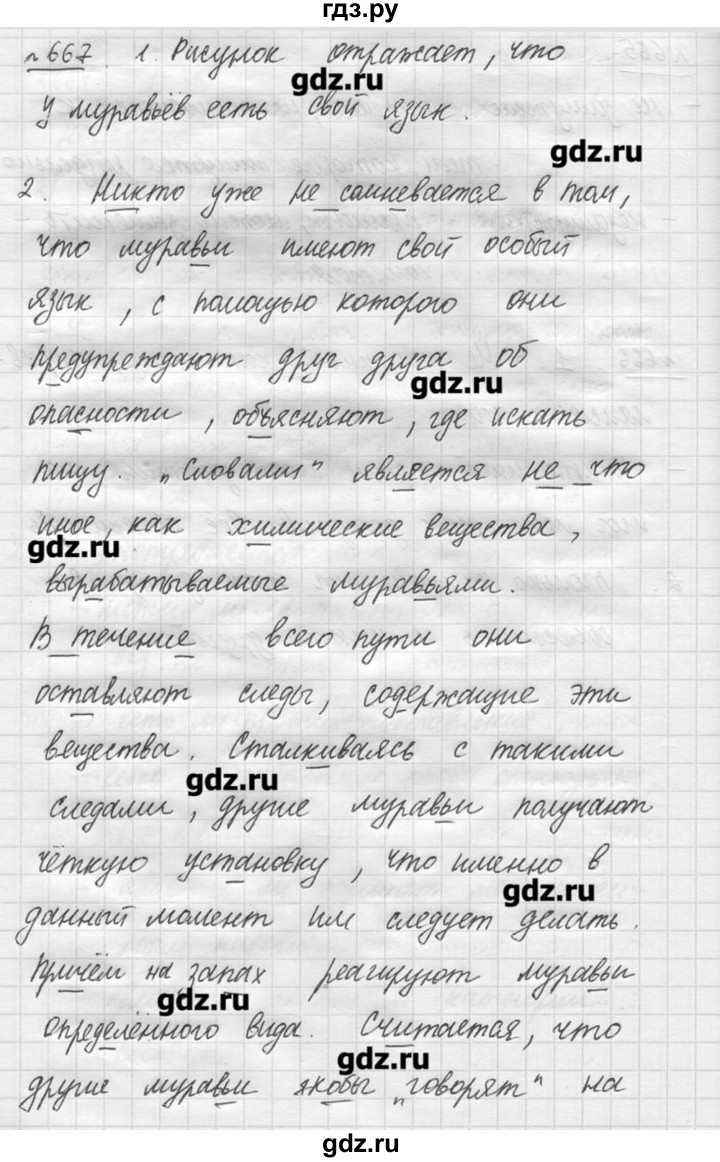 гдз.ру
№667. 1. Рисунок отражает, что
gdz.ru
у муравьёв есть свой язык.
gdz.ru
2. Никто уже не сомневается в том,
что муравьи имеют свой особый
язык, с помощью которого они
предупреждают друг друга об
gdz.ru
опасности, объясняют, где искать
пищу. "Словами" является не что
иное, как химические вещества,
gdz.ru
вырабатываемые муравьями.
В течение всего пути они
оставляют следы, содержащие эти
вещества. Сталкиваясь с такими
gdz.ru
следами, другие муравьи получают
чёткую установку, что именно в
gdz.ru
данный момент им следует делать.
Причём на запах реагируют муравьи
gdz.ru
определённого вида. Считается, что
gdz.ru
другие муравьи якобы "говорят" на
gdz.ru